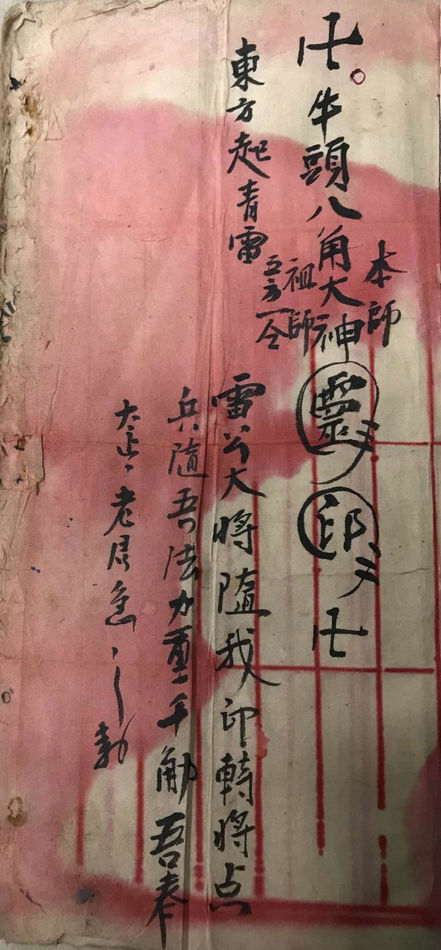 卍牛頭八角大神靈印卍
本師
祖師
東方起青雷
吾方一令
雷公大將隨我印轉將点
兵隨吾法力重千觔吾奉
太上老君急